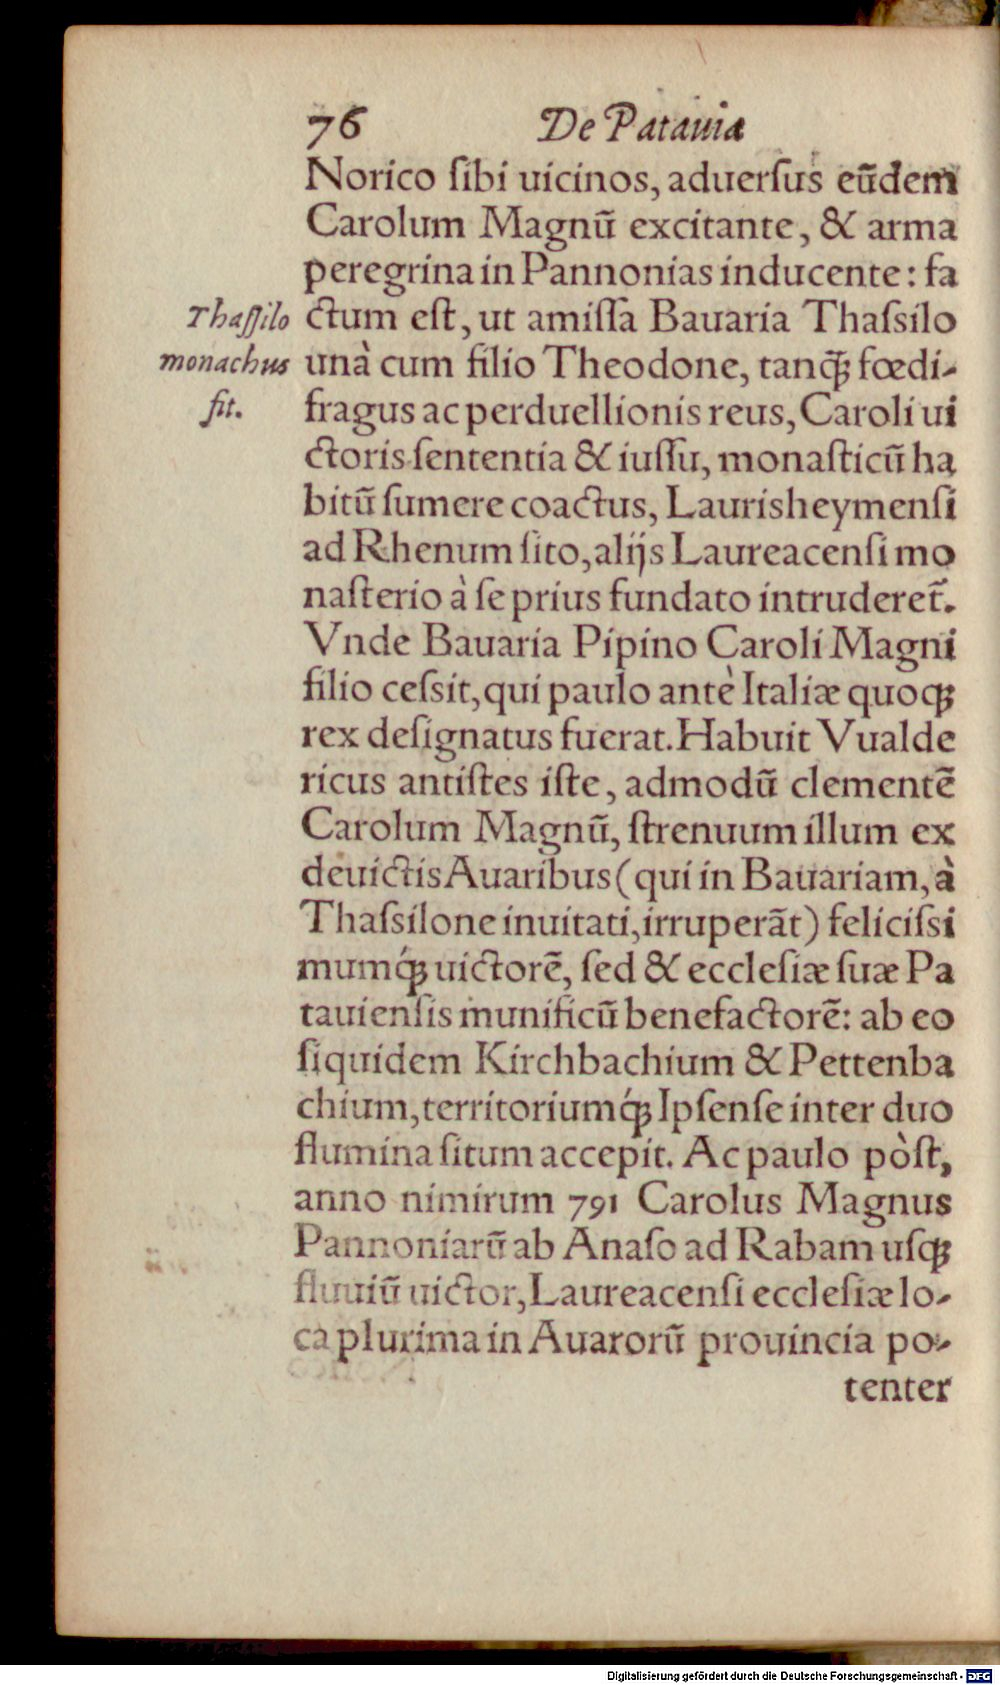 76 De Patauia
Norico ſibi uicinos, aduerſus eũdem
Carolum Magnũ excitante, & arma
peregrina in Pannonias inducente: fa
ctum eſt, ut amiſſa Bauaria Thaſsilo
unà cum filio Theodone, tanq̃ꝫ fœdi-
fragus ac perduellionis reus, Caroli ui
ctoris ſententia & iuſſu, monaſticũ ha
bitũ ſumere coactus, Laurisheymenſi
ad Rhenum ſito, alijs Laureacenſi mo
naſterio à ſe prius fundato intruderet̃.
Vnde Bauaria Pipino Caroli Magni
filio ceſsit, qui paulo antè Italiæ quoqꝫ
rex deſignatus fuerat. Habuit Vualde
ricus antiſtes iſte, admodũ clementẽ
Carolum Magnũ, ſtrenuum illum ex
deuictis Auaribus (qui in Bauariam, à
Thaſsilone inuitati, irruperãt) feliciſsi
mumq́ꝫ uictorẽ, ſed & eccleſiæ ſuæ Pa
tauienſis munificũ benefactorẽ: ab eo
ſiquidem Kirchbachium & Pettenba
chium, territoriumq́ꝫ Ipſenſe inter duo
flumina ſitum accepit. Ac paulo pòſt,
anno nimirum 791 Carolus Magnus
Pannoniarũ ab Anaſo ad Rabam uſqꝫ
fluuiũ uictor, Laureacenſi eccleſiæ lo-
ca plurima in Auarorũ prouincia po-
tenter
Thaſſilo
monachus
fit.
Digitalisierung gefördert durch die Deutsche Forschungsgemeinschaft - DFG